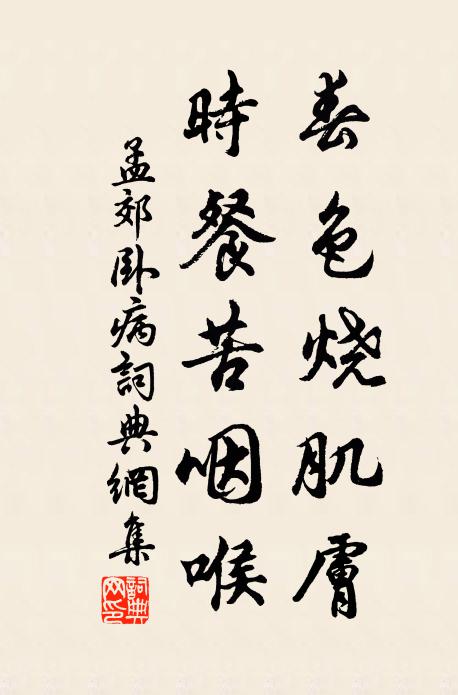 春色烧肌膚
時餐苦咽喉
孟郊卧病詞典網集
詞典网印